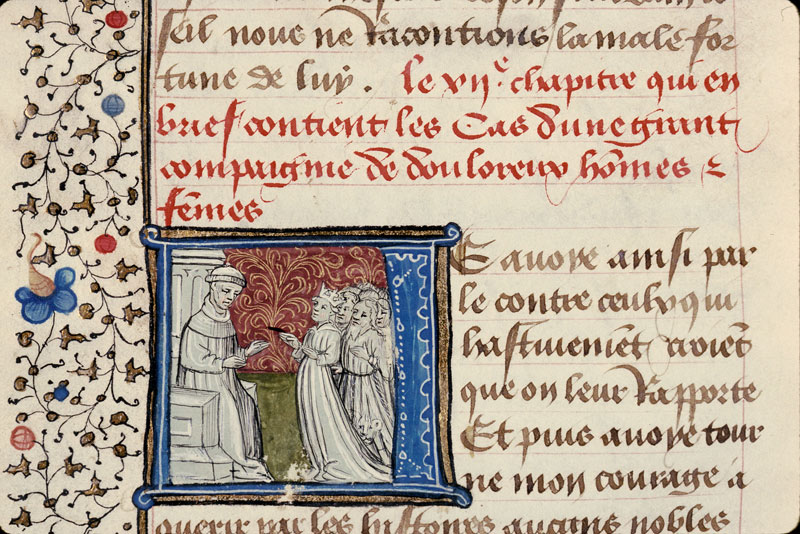 seil nous ne racontions la male for
tune de luy. le vii.e chapitre qui en
brief contient les Cas dune grant
compaignie de douloreux hōmes ⁊
fēmes
E auoye ainsi par
le contre ceulx qui
hastiuemēt croiēt
que on leur Rapporte
Et puis auoye tour
ne mon courage a
querir par les histoires aucuns nobles